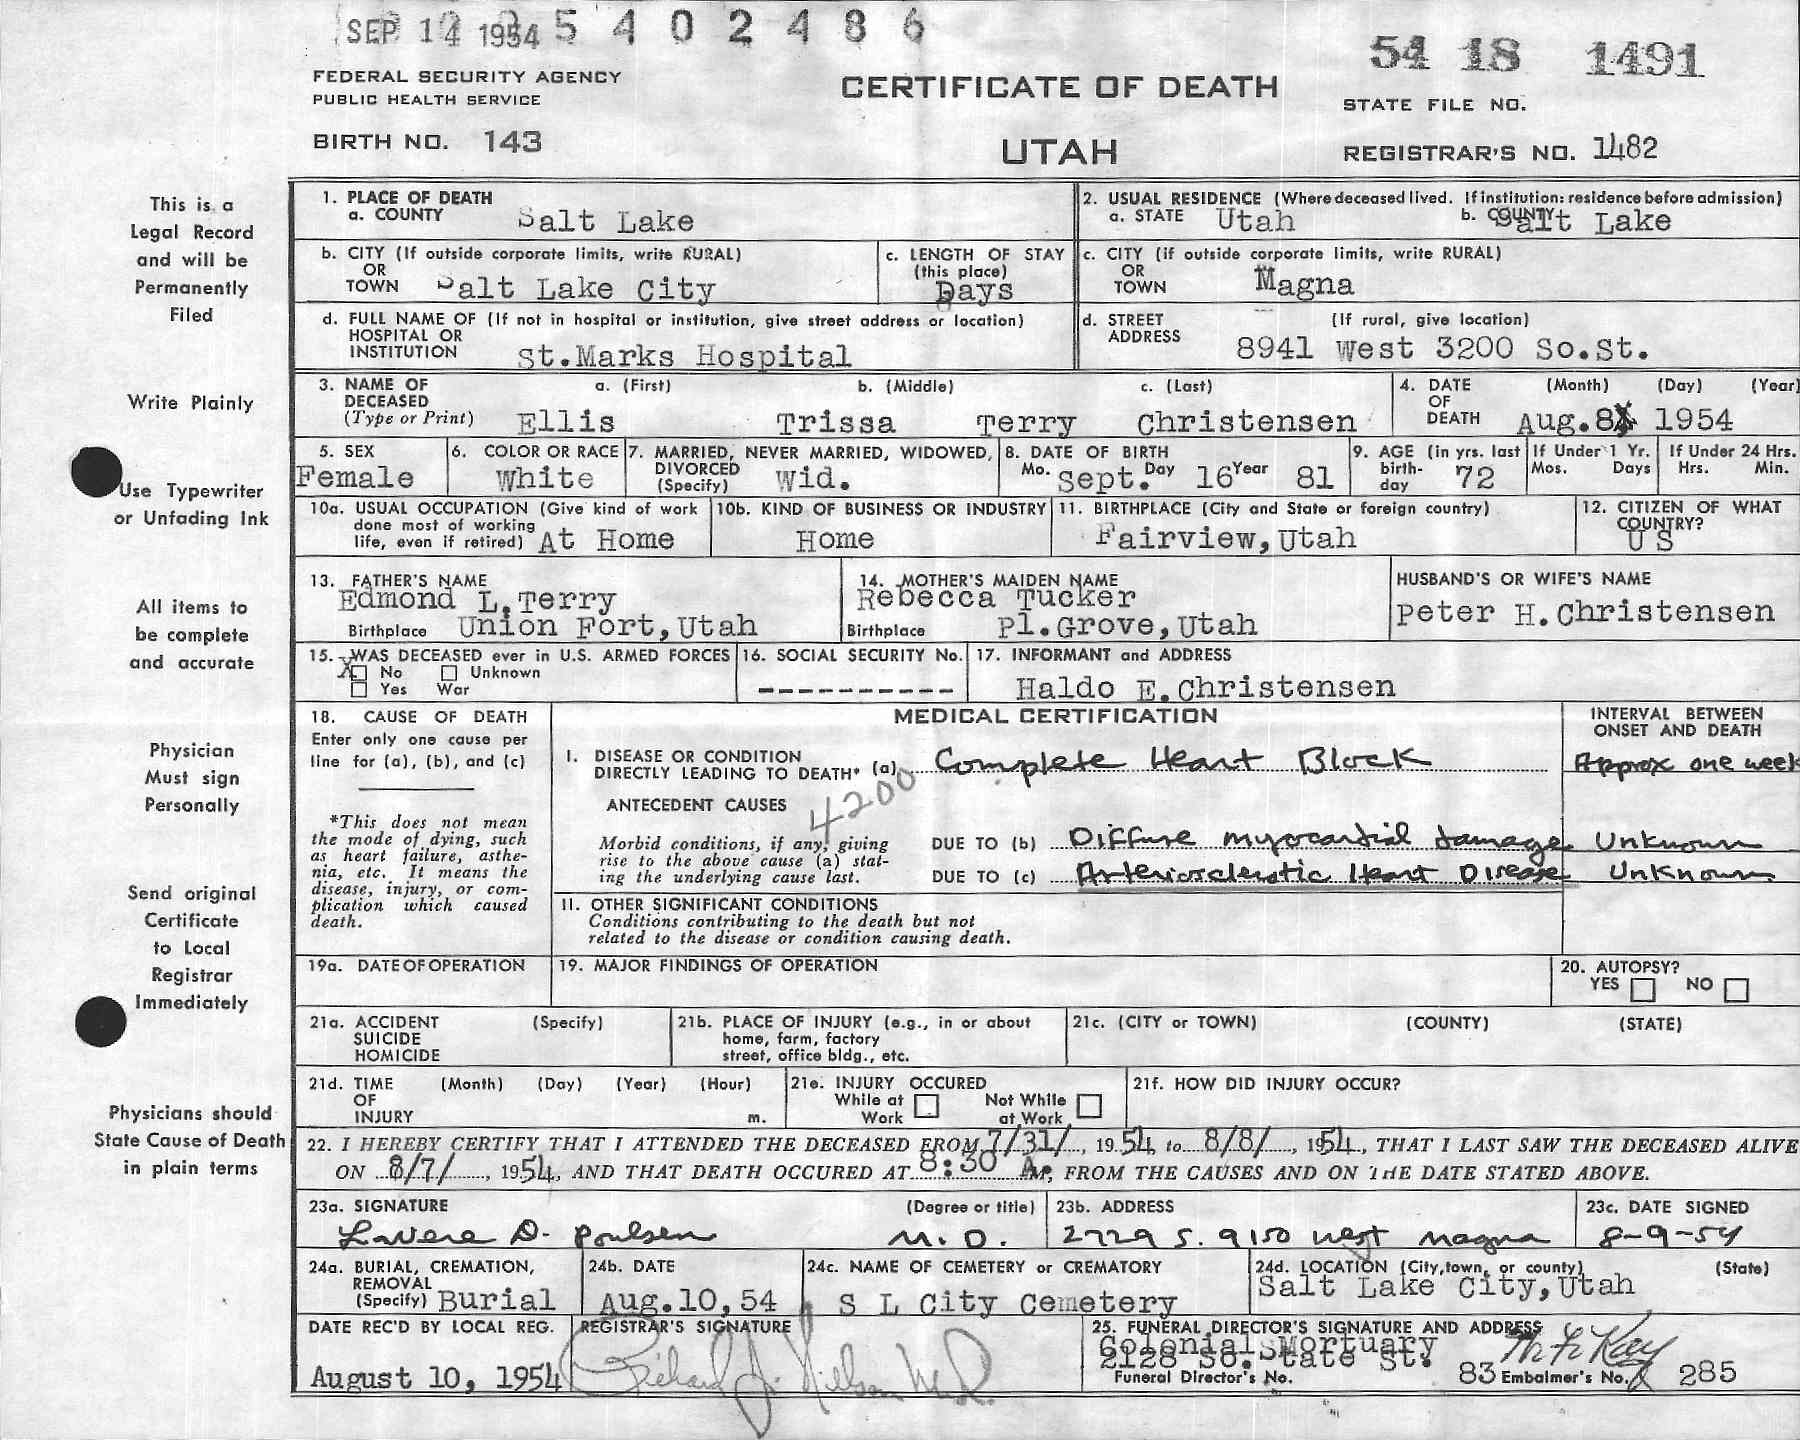 SEP 14 1954 5 4 0 2 4 8 6
54 18 1491
FEDERAL SECURITY AGENCY
PUBLIC HEALTH SERVICE
CERTIFICATE OF DEATH
STATE FILE NO.
BIRTH NO. 143
UTAH
REGISTRAR'S NO. 1482
This is a
Legal Record
and will be
Permanently
Filed
Write Plainly
Use Typewriter
or Unfading Ink
All items to
be complete
and accurate
Physician
Must sign
Personally
Send original
Certificate
to Local
Registrar
Immediately
Physicians should
State Cause of Death
in plain terms
1. PLACE OF DEATH
a. COUNTY Salt Lake
2. USUAL RESIDENCE (Where deceased lived. If institution: residence before admission)
a. STATE Utah b. COUNTY Salt Lake
b. CITY (If outside corporate limits, write RURAL)
OR
TOWN Salt Lake City
c. LENGTH OF STAY
(this place)
Days
c. CITY (if outside corporate limits, write RURAL)
OR
TOWN Magna
d. FULL NAME OF (If not in hospital or institution, give street address or location)
HOSPITAL OR
INSTITUTION St.Marks Hospital
d. STREET (If rural, give location)
ADDRESS 8941 West 3200 So.St.
3. NAME OF a. (First) b. (Middle) c. (Last)
DECEASED
(Type or Print) Ellis Trissa Terry Christensen
4. DATE (Month) (Day) (Year)
OF
DEATH Aug.8 1954
5. SEX
Female
6. COLOR OR RACE
White
7. MARRIED, NEVER MARRIED, WIDOWED,
DIVORCED
(Specify) Wid.
8. DATE OF BIRTH
Mo. Sept. Day 16 Year 81
9. AGE (in yrs. last
birth-
day 72
If Under 1 Yr.
Mos. Days
If Under 24 Hrs.
Hrs. Min.
10a. USUAL OCCUPATION (Give kind of work
done most of working
life, even if retired) At Home
10b. KIND OF BUSINESS OR INDUSTRY
Home
11. BIRTHPLACE (City and State or foreign country)
Fairview,Utah
12. CITIZEN OF WHAT
COUNTRY?
US
13. FATHER'S NAME
Edmond L.Terry
Birthplace Union Fort,Utah
14. MOTHER'S MAIDEN NAME
Rebecca Tucker
Birthplace Pl.Grove,Utah
HUSBAND'S OR WIFE'S NAME
Peter H.Christensen
15. WAS DECEASED ever in U.S. ARMED FORCES
X No Unknown
Yes War
16. SOCIAL SECURITY No.
----------
17. INFORMANT and ADDRESS
Haldo E.Christensen
18. CAUSE OF DEATH
Enter only one cause per
line for (a), (b), and (c)
*This does not mean
the mode of dying, such
as heart failure, asthe-
nia, etc. It means the
disease, injury, or com-
plication which caused
death.
MEDICAL CERTIFICATION
INTERVAL BETWEEN
ONSET AND DEATH
I. DISEASE OR CONDITION
DIRECTLY LEADING TO DEATH* (a) Complete Heart Block Approx one week
ANTECEDENT CAUSES
4200
Morbid conditions, if any, giving
rise to the above cause (a) stat-
ing the underlying cause last.
DUE TO (b) Diffuse myocardial damage Unknown
DUE TO (c) Arteriosclerotic Heart Disease Unknown
11. OTHER SIGNIFICANT CONDITIONS
Conditions contributing to the death but not
related to the disease or condition causing death.
19a. DATE OF OPERATION
19. MAJOR FINDINGS OF OPERATION
20. AUTOPSY?
YES NO
21a. ACCIDENT (Specify)
SUICIDE
HOMICIDE
21b. PLACE OF INJURY (e.g., in or about
home, farm, factory
street, office bldg., etc.
21c. (CITY or TOWN) (COUNTY) (STATE)
21d. TIME (Month) (Day) (Year) (Hour)
OF
INJURY m.
21e. INJURY OCCURED
While at Work Not While at Work
21f. HOW DID INJURY OCCUR?
22. I HEREBY CERTIFY THAT I ATTENDED THE DECEASED FROM 7/31/, 1954, to 8/8/, 1954, THAT I LAST SAW THE DECEASED ALIVE
ON 8/7/, 1954, AND THAT DEATH OCCURED AT 8:30 A.M, FROM THE CAUSES AND ON THE DATE STATED ABOVE.
23a. SIGNATURE (Degree or title)
LaVere D. Poulsen M.D.
23b. ADDRESS
2729 S. 9150 West Magna
23c. DATE SIGNED
8-9-54
24a. BURIAL, CREMATION,
REMOVAL
(Specify) Burial
24b. DATE
Aug.10,54
24c. NAME OF CEMETERY or CREMATORY
S L City Cemetery
24d. LOCATION (City, town, or county) (State)
Salt Lake City,Utah
DATE REC'D BY LOCAL REG.
August 10, 1954
REGISTRAR'S SIGNATURE
Richard J. Nielson M.D.
25. FUNERAL DIRECTOR'S SIGNATURE AND ADDRESS
Colonial Mortuary
2128 So. State St.
Funeral Director's No. 83 Embalmer's No. 285